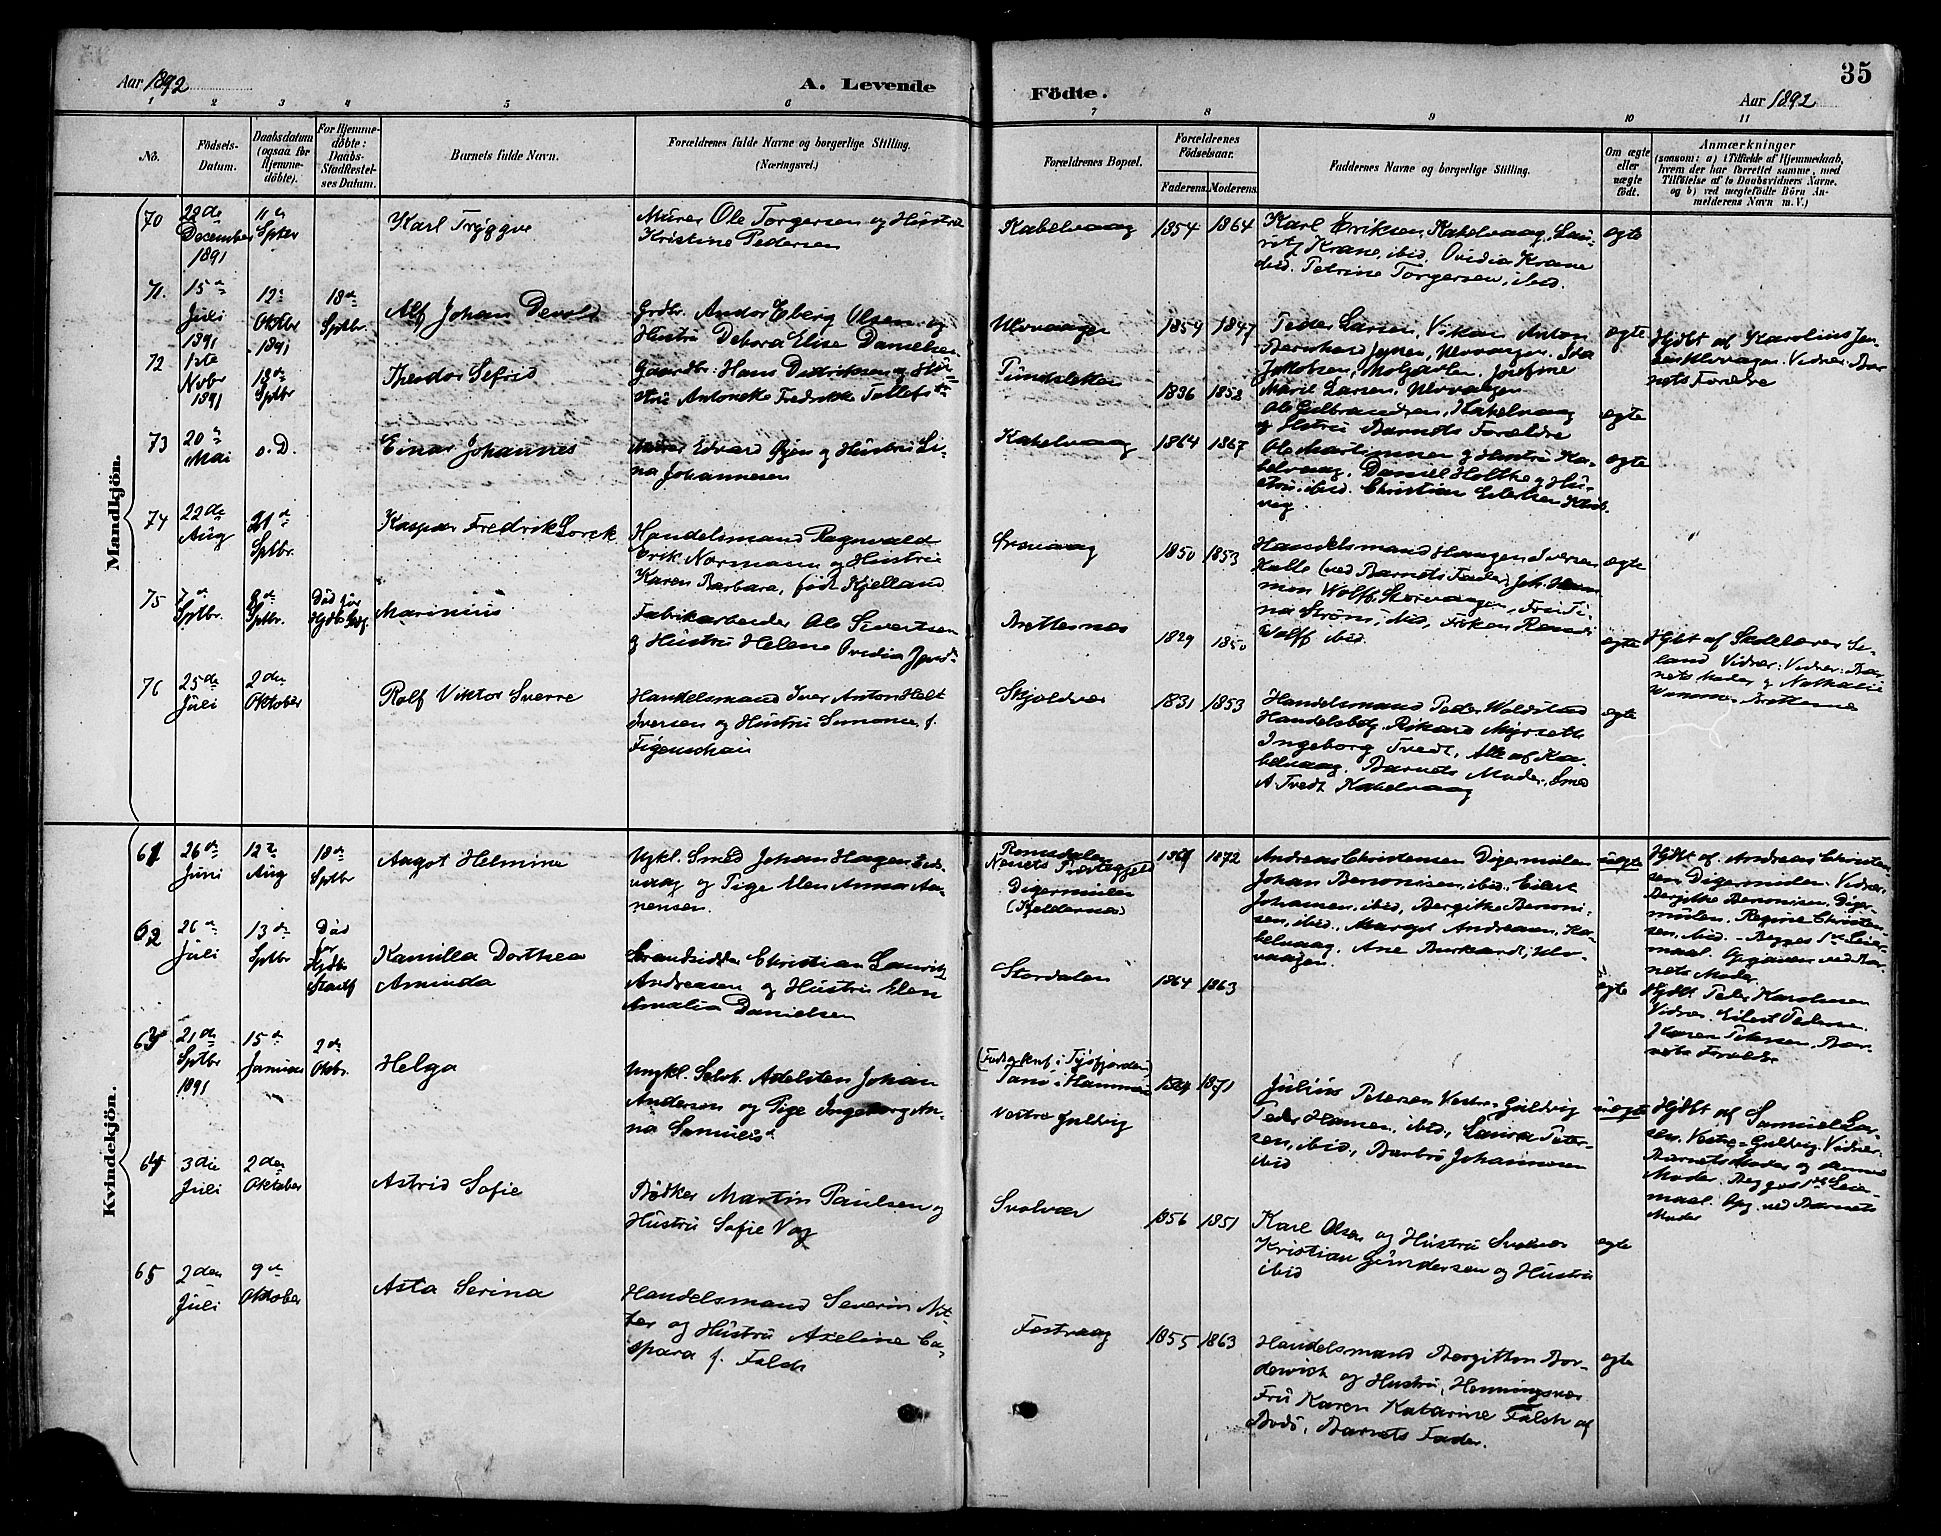 Aar 1892
A. Levende
Födte.
35
Aar 1892
1 2 3 4 5 6 7 8 9 10 11
No.
Födsels-
Datum.
Daabsdatum
(ogsaa for
Hjemme-
döbte).
For Hjemme-
döbte:
Daabs-
Stadfæstel-
ses Datum.
Barnets fulde Navn.
Forældrenes fulde Navne og borgerlige Stilling.
(Næringsvei.)
Forældrenes Bopæl.
Forældrenes
Födselsaar.
Faderens. Moderens.
Faddernes Navne og borgerlige Stilling.
Om ægte
eller
uægte
födt.
Anmærkninger
(saasom: a) i Tilfælde af Hjemmedaab,
hvem der har forrettet samme, med
Tilföielse af to Daabsvidners Navne.
og b) ved uægtefödte Börn An-
melderens Navn m. V.)
Mandkjön.
70
December
1891
11te
Sptbr
Karl Tryggve
Murer Ole Torgersen og Hustru
Kristine Pedersen
Kabelvaag
1854 1864
Karl Eriksen, Kabelvaag, Lau-
Krane, ibid, Ovidia Krane
ibid. Petrine Torgersen, ibid.
ægte
71.
15de
Juli
1891
12te
Oktbr
1891
18de
Sptbr.
Alf Johan Devold
Grdbr. Andor Eberg Olsen og
Hustru Debora Elise Danielsen
Ulvaagen
1859 1847
Peder Larsen, Vikan, Anton
Bernhard Jensen, Ulvaagen, Ida
Jakobsen, Molgavlen, Josefine
Marie Larsen, Ulvaagen
ægte
Hjdbt af Karolius Jen-
sen Ulvaagen. Vidner: Bar-
nets Forældre
72
1ste
Nobr
1891
18de
Sptbr
Theodor Sefrid
Gaardbr. Hans Dedriksen og Hu-
stru Antonette Fredrikke Tollefsdtr
Pundsletten
1836 1852
Ole Gulbrandsen, Kabelvaag
og Hstru Barnets Forældre
ægte
73
20de
Mai
s.D.
Einar Johannes
Murer Edvard Gjøen og Hustru Li-
na Johannesen
Kabelvaag
1864 1867
Ole Martinusen og Hustru Ka-
belvaag, Daniel Holtke og Hu-
stru, ibid. Christian Eilertsen
ægte
74
22de
Aug
21de
Sptbr.
Kaspar Fredrik Lorck
Handelsmand Ragnvald
Erik Normann og Hustru
Karen Barbara, født Kjelland
1850 1853
Handelsmand Haagen Iversen
Kalle (ved Barnets Fader) Joh. Hem-
min Wolff Storvaagen, Fru Ti-
na Strøm, ibid, Frøken Ragndi
Wolff ibid.
ægte
75
7de
Sptbr.
8de
Sptbr.
Død før
Hjdb. Stdf.
Marinius
Fabrikarbeider Ole Sivertsen
og Hustru Helene Ovedia
Brettesnes
1829 1850
ægte
Hjdbt af Skolelærer Se-
land Vidner: Bar-
nets Moder og Nathalie
Brettesnes
76
25de
Juli
2den
Oktober
Rolf Viktor Sverre
Handelsmand Iver Anton Holt
Iversen og Hustru Simone f.
Figenschau
Skjoldvær
1831 1853
Handelsmand Peder Woldstad
Handelsbetj. Rikard Myrseth
Ingeborg Tvedt, Alle af Ka-
belvaag. Barnets Moder, Smed
A Tvedt Kabelvaag
ægte
Kvindekjön.
61
26de
Juni
12te
Aug
18de
Sptbr
Aagot Helmine
Ugkl. Smed Johan Hagen
og Pige Elen Anna Aa-
nensen.
Romsdalen
Nessets Præstegjeld
Digermulen
(Kjeldernes)
1869 1872
Andreas Christensen Digermulen
Johan Benonisen, ibid. Eilert
Johansen, ibid, Bergithe Benoni-
sen, ibid, Margot Andreasen, Ka-
belvaag. Ane Burkardt, Ulv-
vaagen.
uægte
Hjdbt af Andreas Christen-
sen, Digermulen. Vidner:
Bergitte Benonisen, Diger-
mulen, Regine Christen-
sen, ibid. - Begges 1ste Leier-
maal. Opgaven ved Bar-
nets Moder
62
26de
Juli
13de
Sptbr
Død
før
Hjdbs
Stadf
Kamilla Dorthea
Aminda
Strandsidder Christian Lauritz
Andreasen og Hustru Elen
Amalia Danielsen
Stordalen
1864 1863
ægte
Hjdbt Peder Karolusen
Vidner: Eilert Pedersen
Karen Petersen, Bar-
nets Forældre
63
21de
Sptbr
1891
15de
Januar
2den
Oktbr.
Helga
Ungkl. Adelsten Johan
Andersen og Pige Ingeborg An-
na Samuelsdr
Tanø i Hammerø
Vestre Guldvig
1864 1871
Julius Petersen Vestre-Guldvig
Peder Hansen, ibid, Laura Peter-
sen, ibid, Barbro Johannesen
ibid
uægte
Hjdbt af Samuel Lar-
sen, Vestre-Guldvig. Vidner:
Barnets Moder og dennes
Moder. Begges 1ste Leier-
maal. Opg. ved Barnets
Moder
64
3die
Juli
2den
Oktober
Astrid Sofie
Bødker Martin Paulsen og
Hustru Sofie Vog
Svolvær
1856 1851
Karl Olsen og Hustru Svolvær
Kristian Gundersen og Hustru
ibid
ægte
65
2den
Juli
9de
Oktober
Asta Serina
Handelsmand Severin Nit-
ter og Hustru Axeline Ca-
spara f. Falch
Festvaag
1855 1863
Handelsmand Bergitton Bor-
dewich og Hustru, Henningsvær
Fru Karen Katarine Falch af
Bodø, Barnets Fader.
ægte